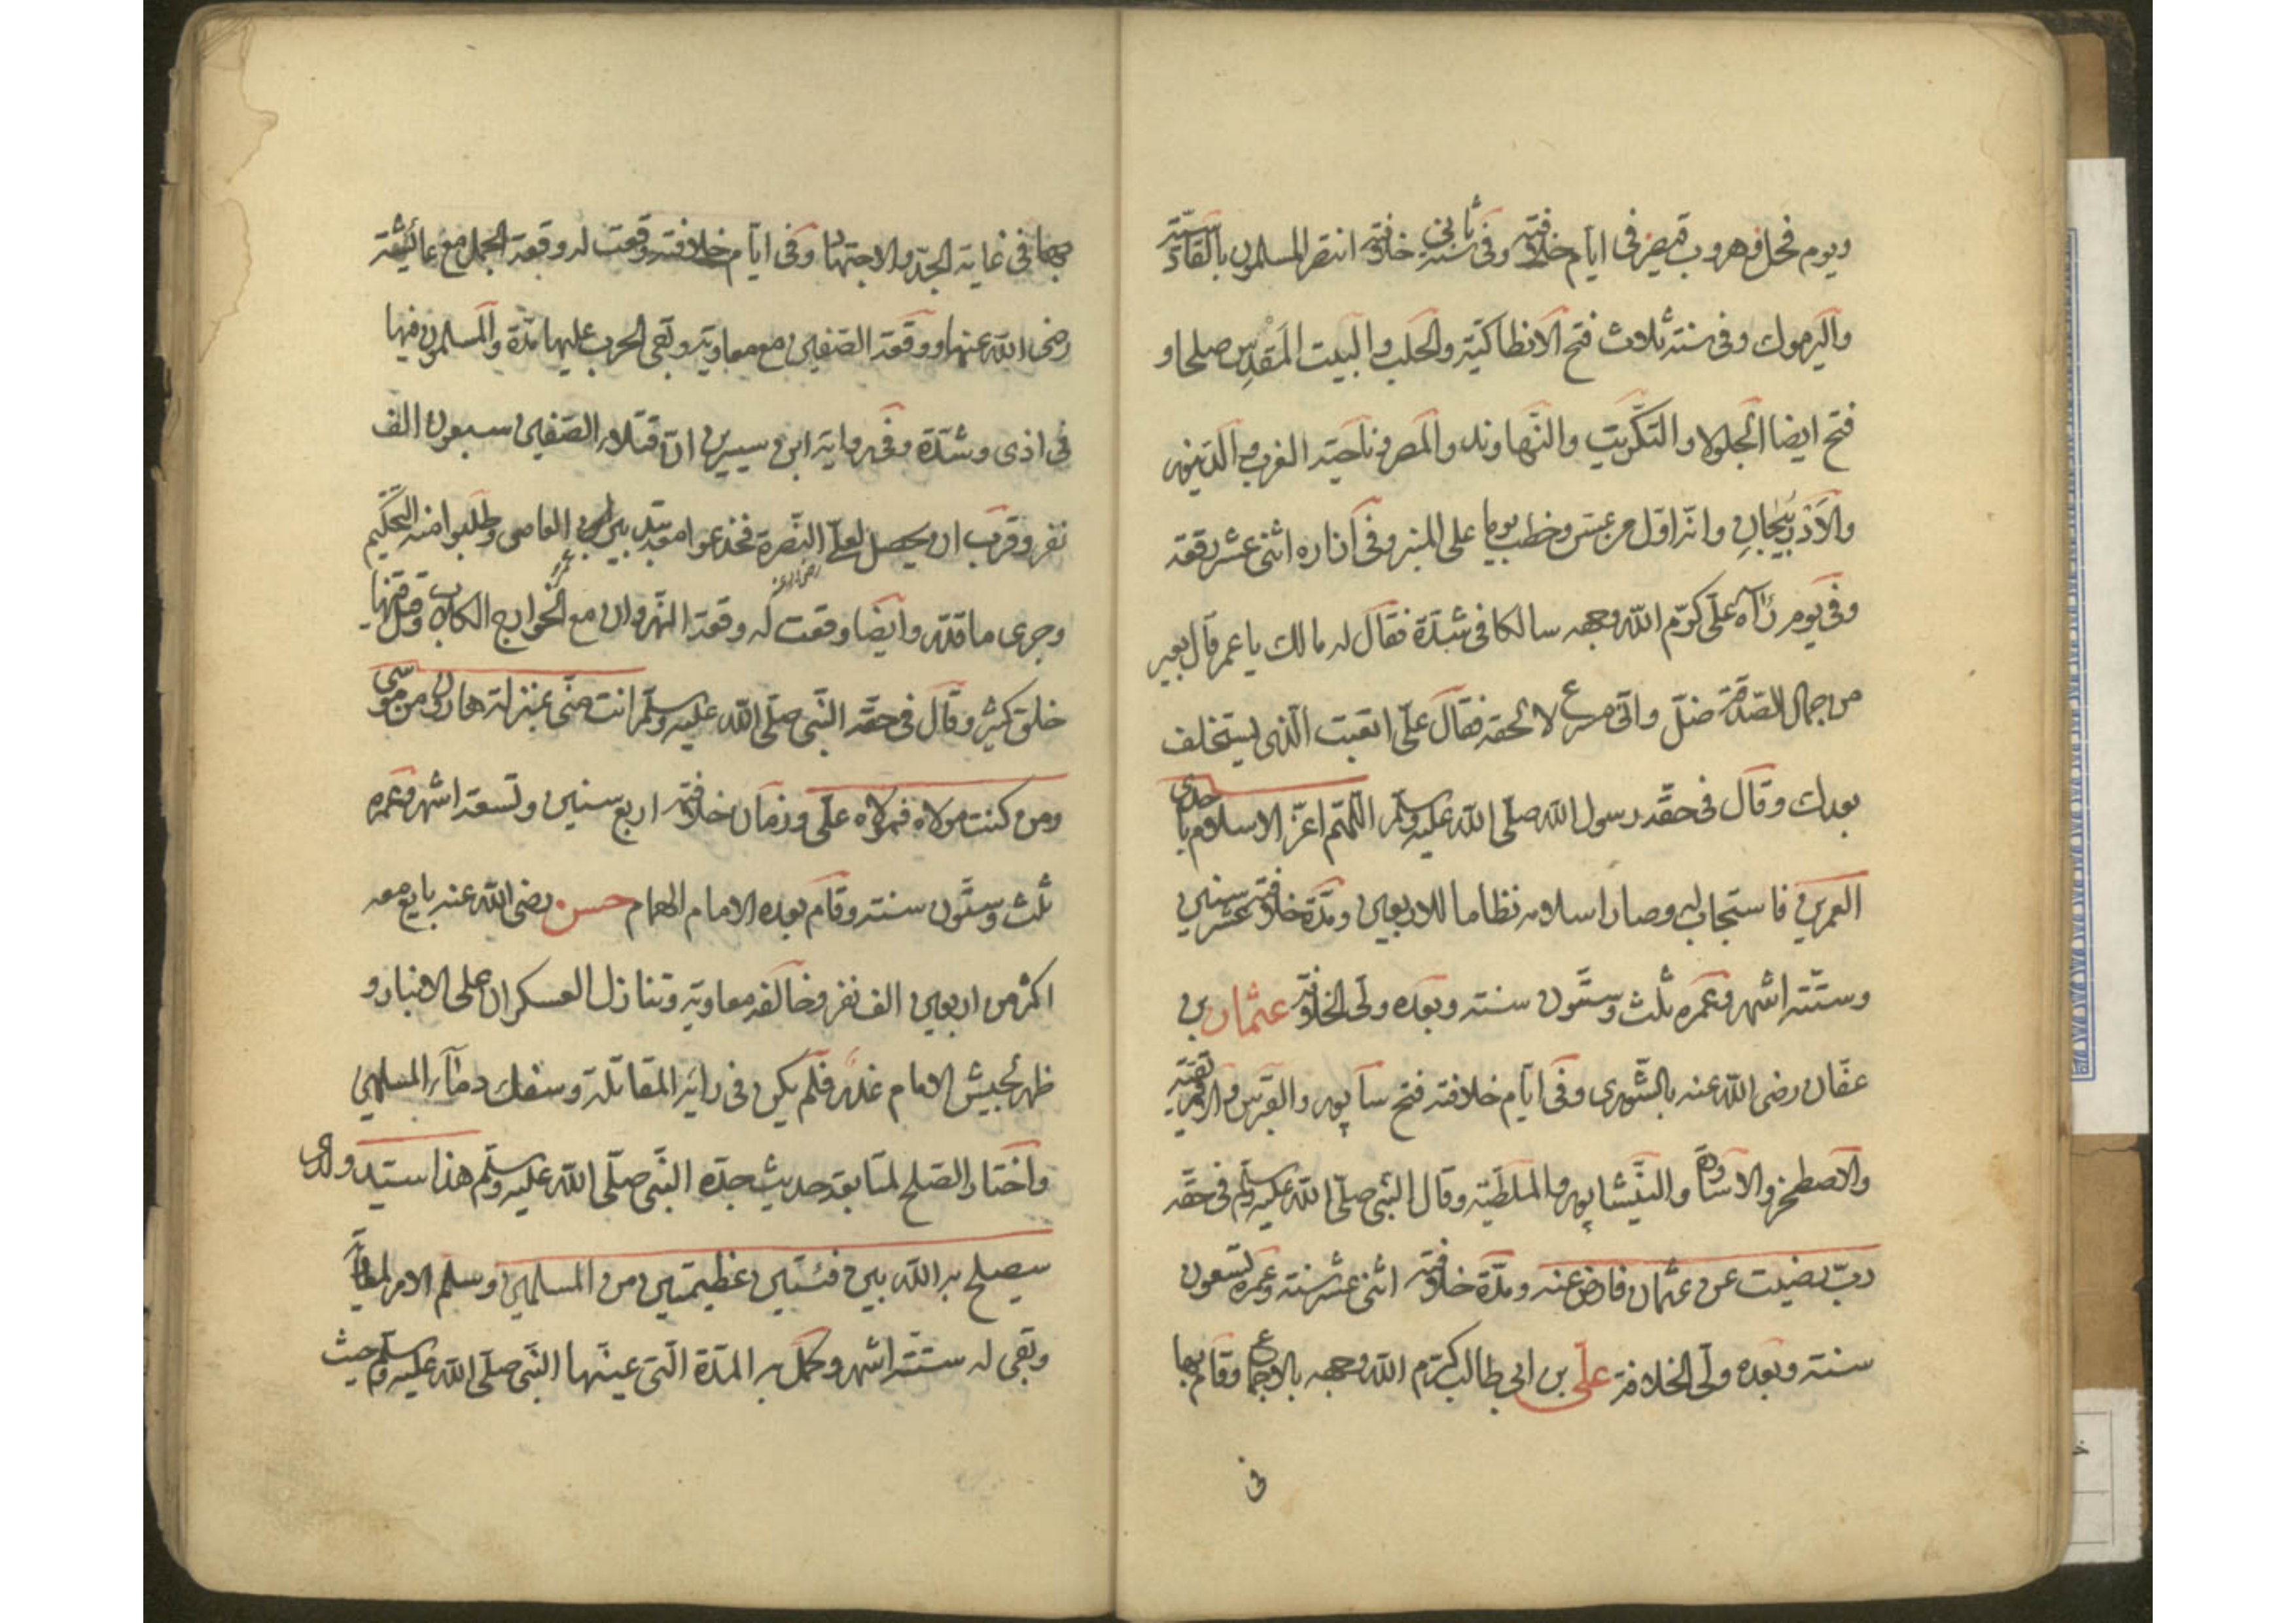 ويوم فحل وهروب قيصر فى ايام خلافته وفى ثانى سنة خلافته انتصر المسلمون بالقادسية
واليرموك وفى سنة ثلاث فتح الانطاكية والحلب والبيت المقدس صلحا و
فتح ايضا الجلولا والتكريت والنهاوند والمصر وناحية الغرب والدينور
والاذربيجان وانه اول من عسّ وخطب يوما على المنبر وفى ازاره اثنى عشر رقعة
وفى يوم رآه على كرم الله وجهه سالكا فى شدة فقال له مالك يا عمر قال بعير
من جمال الصدقة ضل واتى مسرع لالحقه فقال على اتعبت الذى يستخلف
بعدك وقال فى حقه رسول الله صلى الله عليه وسلم اللهم اعز الاسلام باحدى
العمرين فاستجاب له وصار اسلامه نظاما للاربعين ومدة خلافته عشر سنين
وستة اشهر وعمره ثلث وستون سنة وبعده ولى الخلافة عثمان بن
عفان رضى الله عنه بالشورى وفى ايام خلافته فتح سابور والقبرس والافريقية
والاصطخر والاساورة والنيشاپور والملطية وقال النبى صلى الله عليه وسلم فى حقه
رب رضيت عن عثمان فارض عنه ومدة خلافته اثنى عشر سنة وعمره تسعون
سنة وبعده ولى الخلافة على بن ابى طالب كرم الله وجهه بالاجماع وقام بها
فى
بها فى غاية الجد والاجتهاد وفى ايام خلافته وقعت له وقعة الجمل مع عائشة
رضى الله عنها ووقعة الصفين مع معاوية وبقى الحرب عليها مدة والمسلمون فيها
فى اذى وشدة وفى رواية ابن سيرين ان قتلاء الصفين سبعون الف
نفر وقرب ان يحصل لعلى النصرة فخذعوا العاصى وطلبوا منه التحكيم
رضى الله عنه
عمرو
وجرى ما قدّر وايضا وقعت له وقعة النهروان مع الخوارج الكلاب وقتل منها
خلق كثير وقال فى حقه النبى صلى الله عليه وسلم انت منى بمنزلة هارون من موسى
ومن كنت مولاه فمولاه على وزمان خلافته اربع سنين وتسعة اشهر وعمره
ثلث وستون سنة وقام بعده الامام الهمام حسن رضى الله عنه بايع معه
اكثر من اربعين الف نفر وخالفه معاوية وتنازل العسكران على الانبار و
ظهر لجيش الامام غلبة فلم يكن فى رايه المقاتلة وسفك دماء المسلمين
واختار الصلح لمتابعة حديث جده النبى صلى الله عليه وسلم هذا سيد ولدى
سيصلح به الله بين فئتين عظيمتين من المسلمين وسلم الامر لمعاوية
وبقى له ستة اشهر وكمل به المدة التى عينها النبى صلى الله عليه وسلم حيث